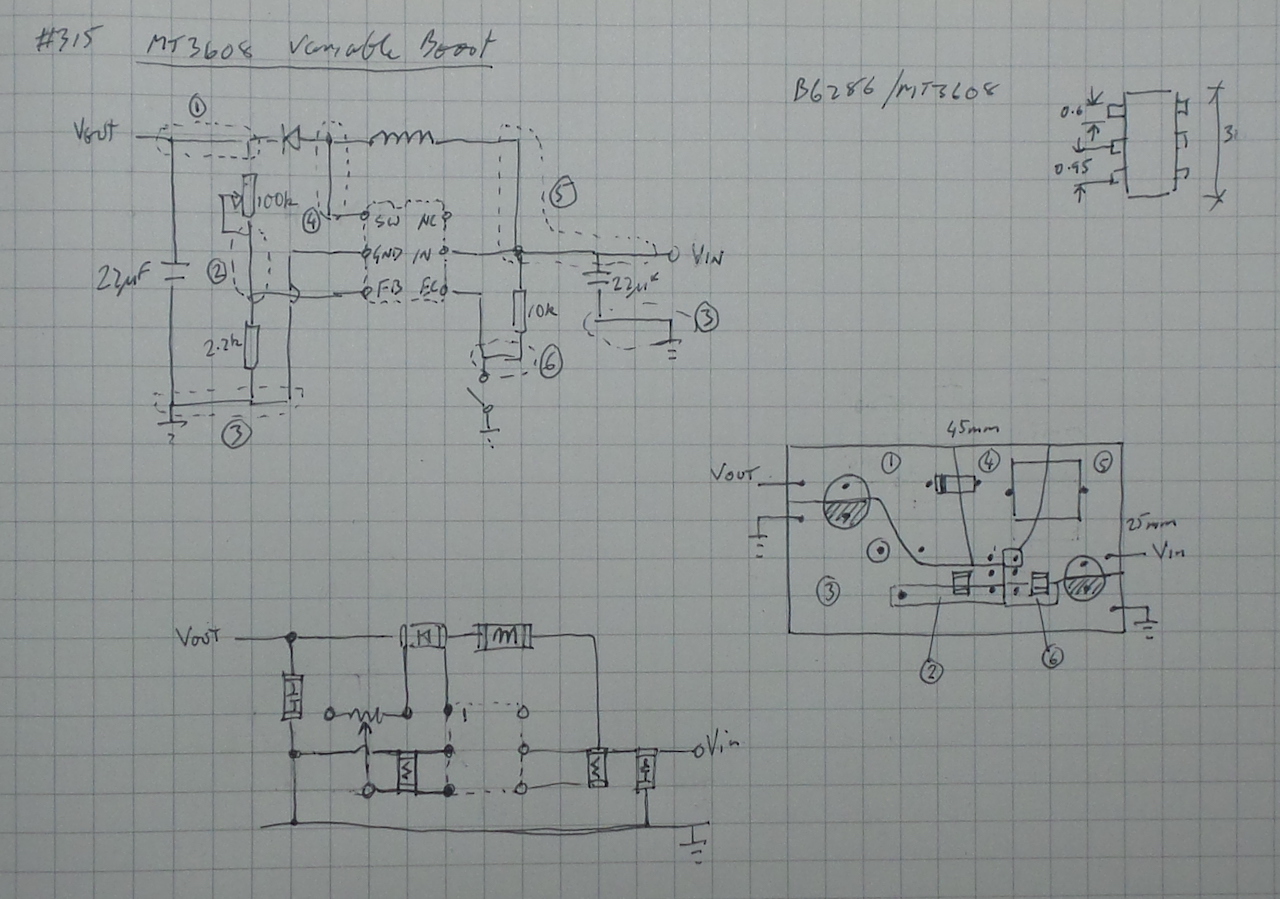 #315 MT3608 Variable Boost
B6286/MT3608
0.6
0.95
3
VOUT
①
100k
④
SW NC
GND IN
FB EN
②
22µF
2.2k
③
⑤
VIN
22µF
10k
③
⑥
45mm
VOUT
①
④
⑤
25mm
Vin
③
②
⑥
VOUT
1
Vin